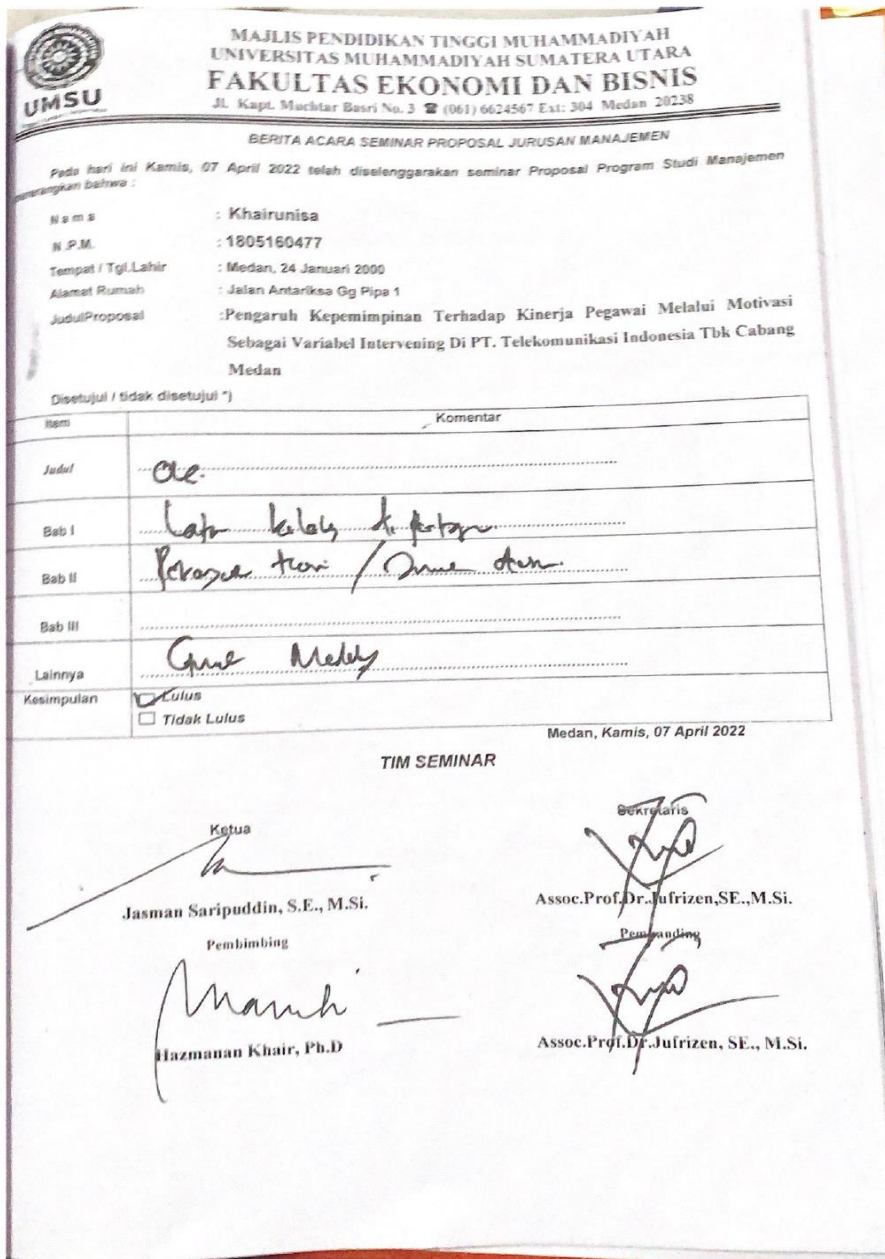 MAJLIS PENDIDIKAN TINGGI MUHAMMADIYAH
UNIVERSITAS MUHAMMADIYAH SUMATERA UTARA
FAKULTAS EKONOMI DAN BISNIS
Jl. Kapt. Muchtar Basri No. 3 ☎ (061) 6624567 Ext: 304 Medan 20238
UMSU
BERITA ACARA SEMINAR PROPOSAL JURUSAN MANAJEMEN
Pada hari ini Kamis, 07 April 2022 telah diselenggarakan seminar Proposal Program Studi Manajemen
menerangkan bahwa :
N a m a : Khairunisa
N .P.M. : 1805160477
Tempat / Tgl.Lahir : Medan, 24 Januari 2000
Alamat Rumah : Jalan Antariksa Gg Pipa 1
JudulProposal :Pengaruh Kepemimpinan Terhadap Kinerja Pegawai Melalui Motivasi
Sebagai Variabel Intervening Di PT. Telekomunikasi Indonesia Tbk Cabang
Medan
Disetujui / tidak disetujui *)
Item Komentar
Judul
Bab I
Bab II
Bab III
Lainnya
Kesimpulan Lulus
Tidak Lulus
Medan, Kamis, 07 April 2022
TIM SEMINAR
Ketua Sekretaris
Jasman Saripuddin, S.E., M.Si. Assoc.Prof.Dr.Jufrizen,SE.,M.Si.
Pembimbing Pembanding
Hazmanan Khair, Ph.D Assoc.Prof.Dr.Jufrizen, SE., M.Si.